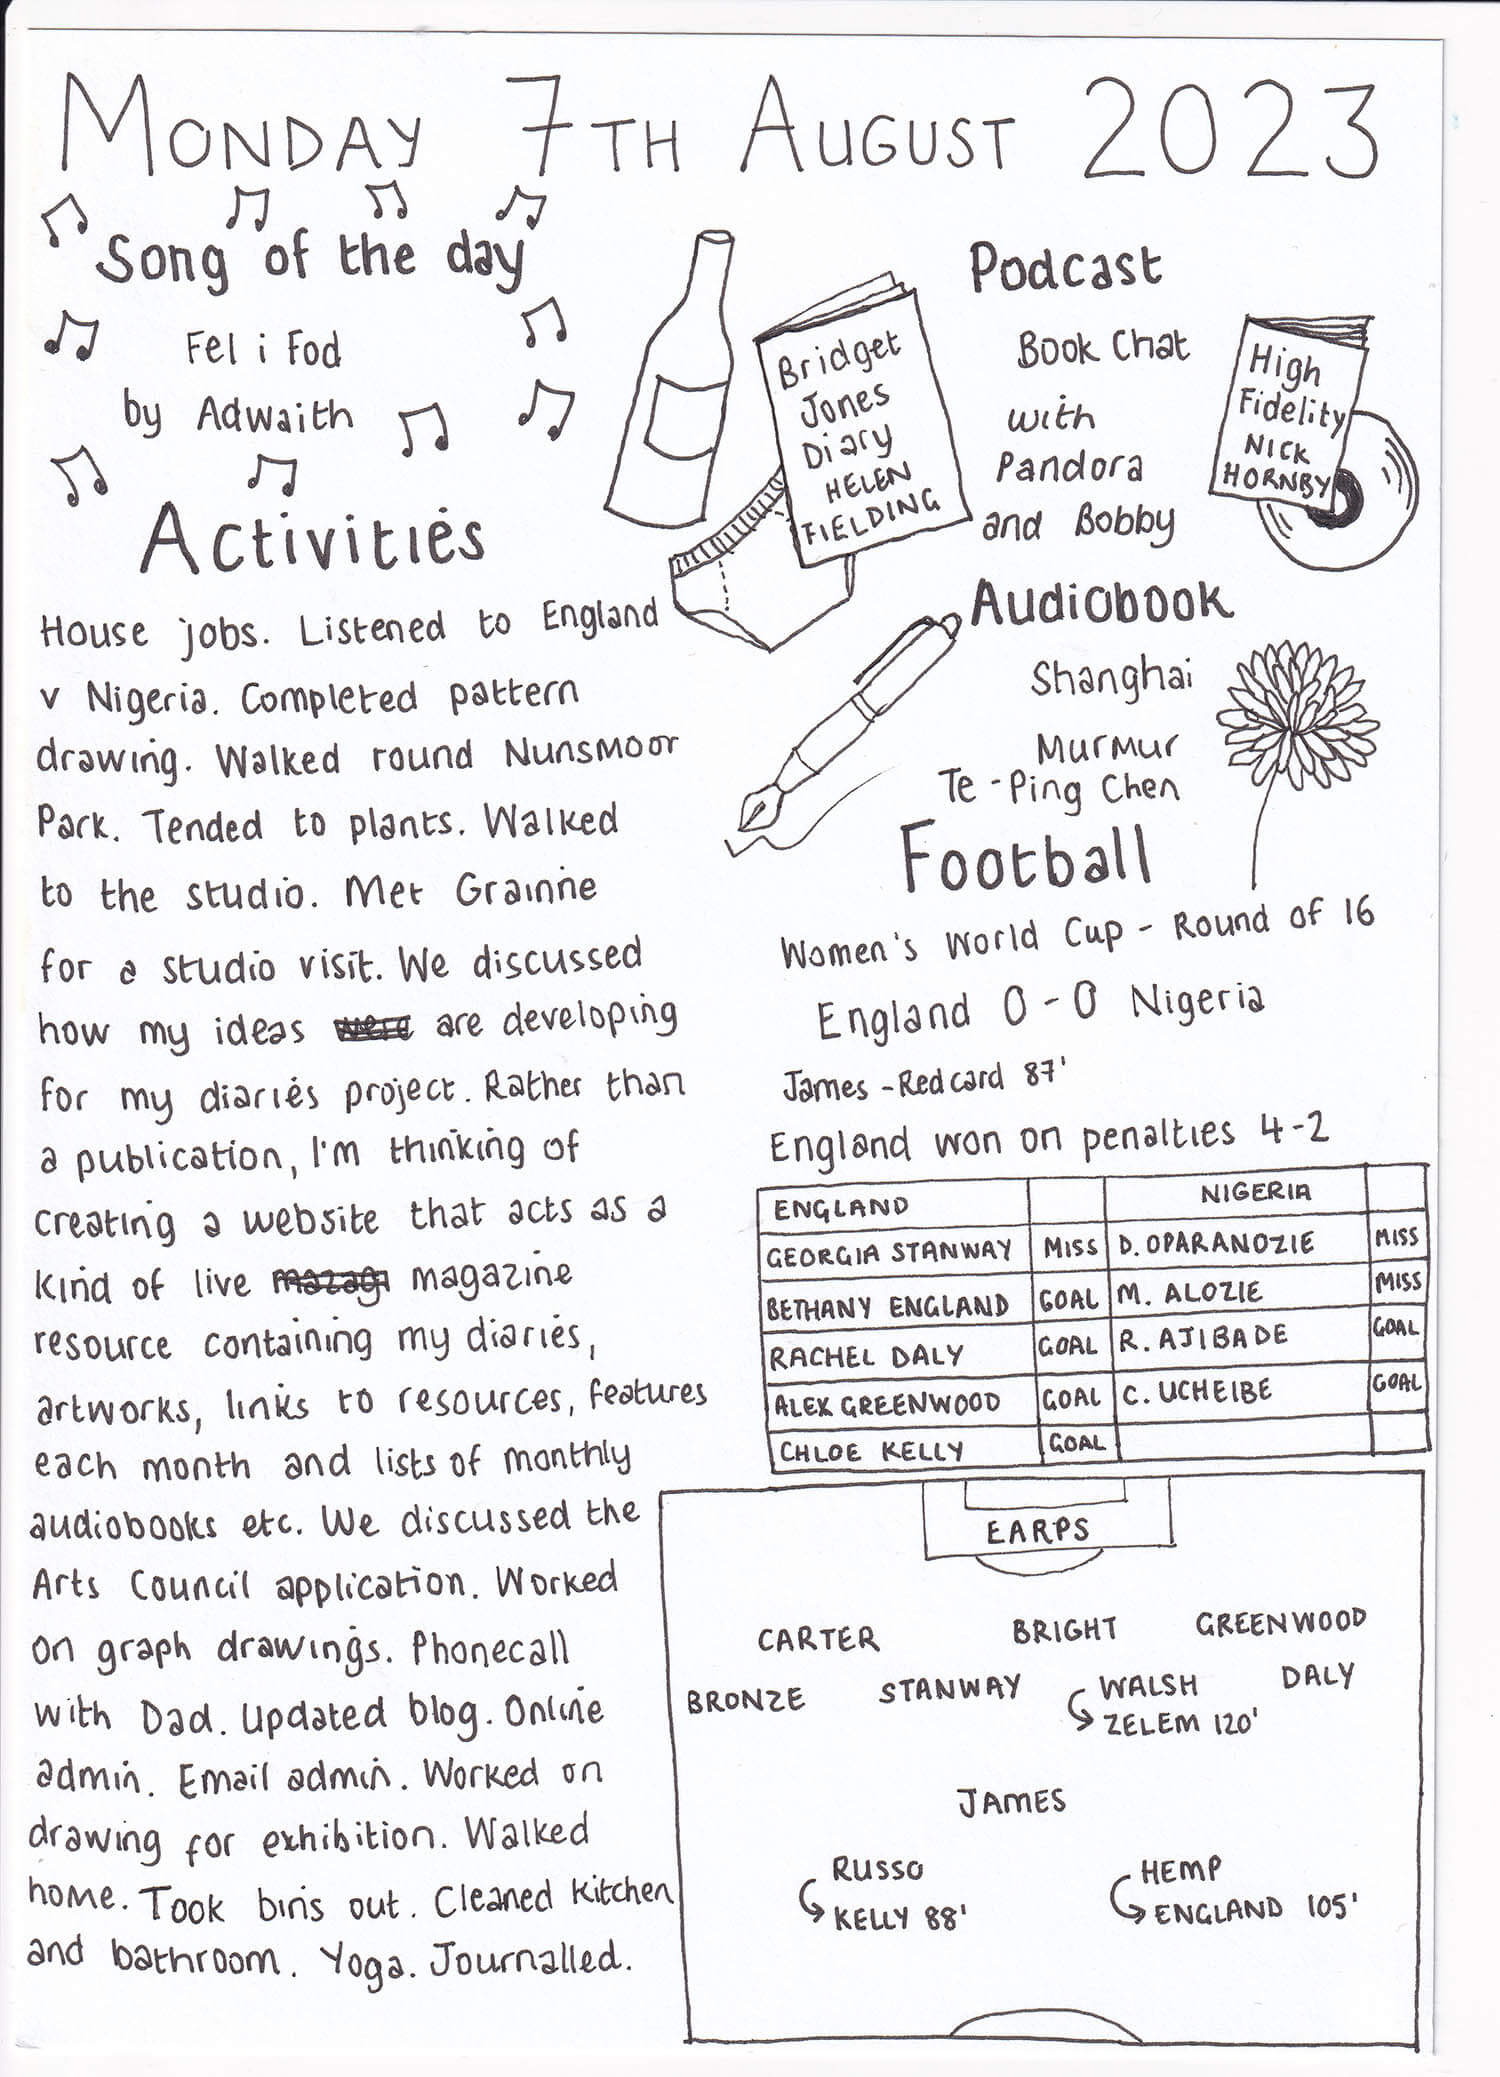 MONDAY 7TH AUGUST 2023
Song of the day
Fel i Fod
by Adwaith
Activities
House jobs. Listened to England
v Nigeria. Completed pattern
drawing. Walked round Nunsmoor
Park. Tended to plants. Walked
to the studio. Met Grainne
for a studio visit. We discussed
how my ideas were are developing
for my diaries project. Rather than
a publication, I'm thinking of
creating a website that acts as a
kind of live mazagi magazine
resource containing my diaries,
artworks, links to resources, features
each month and lists of monthly
audiobooks etc. We discussed the
Arts Council application. Worked
on graph drawings. Phonecall
with Dad. Updated blog. Online
admin. Email admin. Worked on
drawing for exhibition. Walked
home. Took bins out. Cleaned kitchen
and bathroom. Yoga. Journalled.
Bridget
Jones
Diary
HELEN
FIELDING
Podcast
Book Chat
with
Pandora
and Bobby
High
Fidelity
NICK
HORNBY
Audiobook
Shanghai
Murmur
Te-Ping Chen
Football
Women's World Cup - Round of 16
England 0-0 Nigeria
James - Red card 87'
England won on penalties 4-2
ENGLAND NIGERIA
GEORGIA STANWAY MISS D. OPARANOZIE MISS
BETHANY ENGLAND GOAL M. ALOZIE MISS
RACHEL DALY GOAL R. AJIBADE GOAL
ALEX GREENWOOD GOAL C. UCHEIBE GOAL
CHLOE KELLY GOAL
EARPS
CARTER BRIGHT GREENWOOD
BRONZE STANWAY WALSH DALY
ZELEM 120'
JAMES
RUSSO HEMP
KELLY 88' ENGLAND 105'